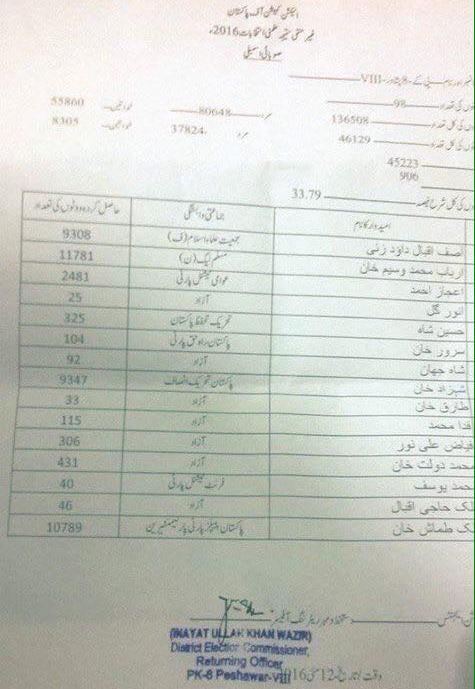 الیکشن کمیشن آف پاکستان
غیر حتمی نتیجہ ضمنی انتخابات 2016ء
صوبائی اسمبلی
پی کے-8 پشاور-VIII
98
مرد 80648 خواتین 55860
کل تعداد 136508
مرد 37824 خواتین 8305
کل تعداد 46129
45223
906
کل شرح فیصد 33.79
امیدوار کا نام جماعتی وابستگی حاصل کردہ ووٹوں کی تعداد
آصف اقبال داؤد زئی جمعیت علماء اسلام (ف) 9308
ارباب محمد وسیم خان مسلم لیگ (ن) 11781
اعجاز احمد عوامی نیشنل پارٹی 2481
انور گل آزاد 25
حسین شاہ تحریک تحفظ پاکستان 325
سرور خان پاکستان راہ حق پارٹی 104
شاہ جہان آزاد 92
شہزاد خان پاکستان تحریک انصاف 9347
طارق خان آزاد 33
فدا محمد آزاد 115
فیاض علی نور آزاد 306
محمد دولت خان آزاد 431
محمد یوسف فرنٹ نیشنل پارٹی 40
ملک حاجی اقبال آزاد 46
ملک طماش خان پاکستان پیپلز پارٹی پارلیمنٹیرین 10789
دستخط و مہر ریٹرننگ آفیسر
(INAYAT ULLAH KHAN WAZIR)
District Election Commissioner,
Returning Officer
PK-8 Peshawar-VIII
وقت / تاریخ 12 مئی 2016